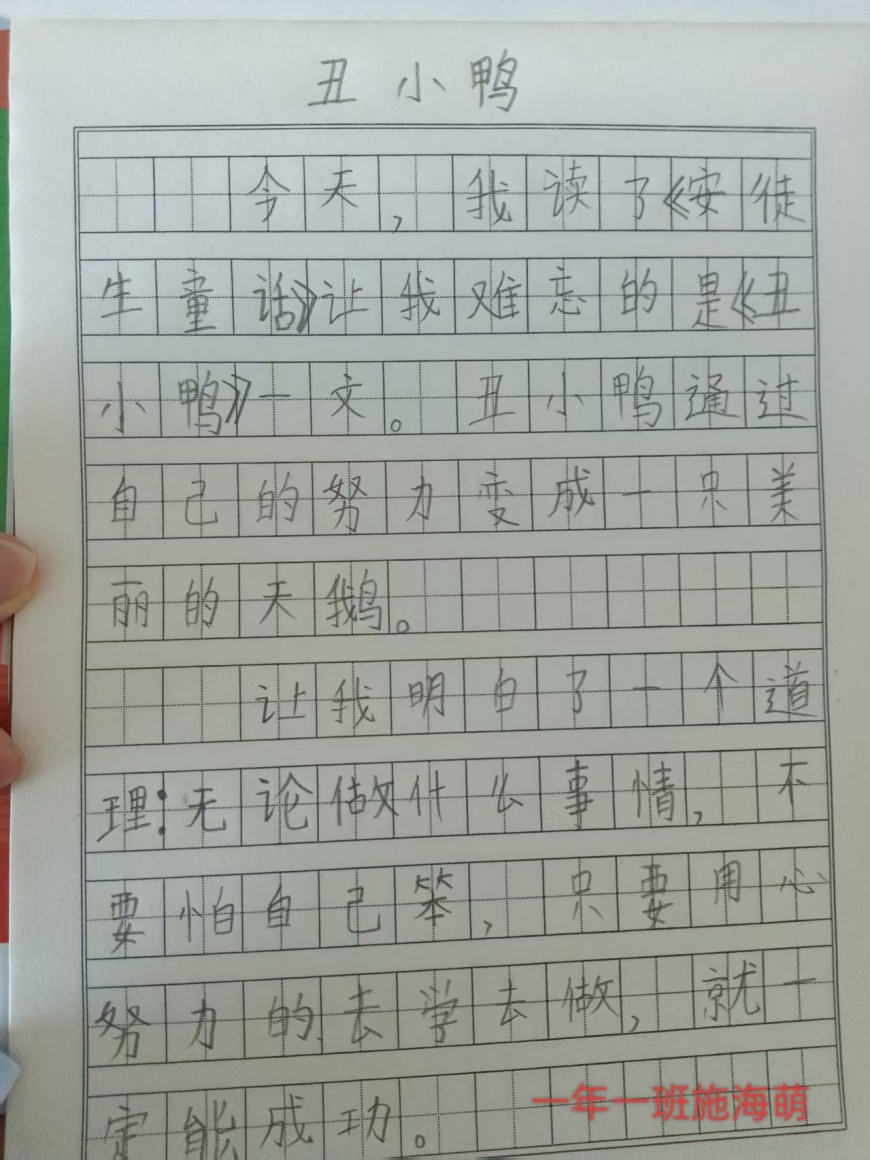 丑小鸭
今天，我读了《安徒
生童话》让我难忘的是《丑
小鸭》一文。丑小鸭通过
自己的努力变成一只美
丽的天鹅。
让我明白了一个道
理：无论做什么事情，不
要怕自己笨，只要用心
努力的去学去做，就一
定能成功。
一年一班施海萌